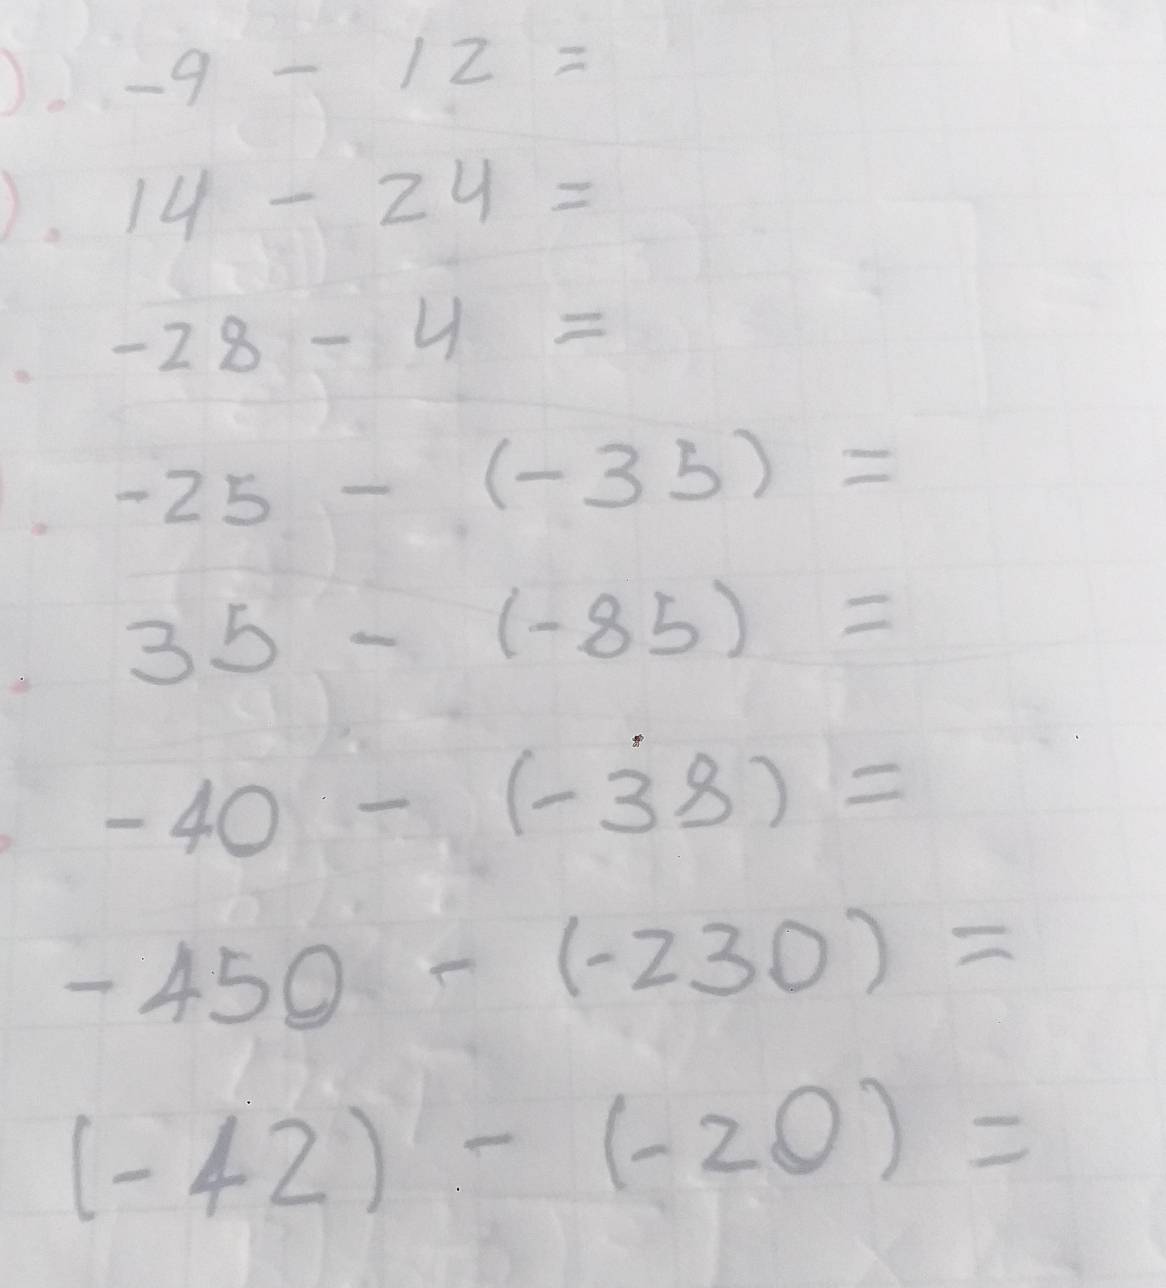 ). -9 - 12 =
). 14 - 24 =
. -28 - 4 =
. -25 - (-35) =
. 35 - (-85) =
. -40 - (-38) =
-450 - (-230) =
(-42) - (-20) =